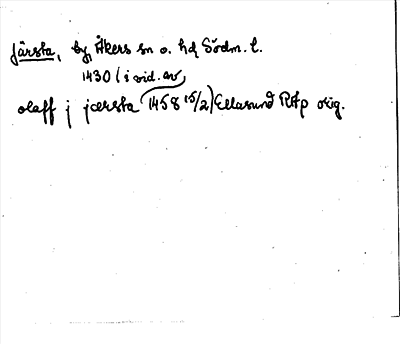 Järsta, by, Åkers sn o. hd Södm. l.
1430 (i vid. av
olaff j jærsta 1458 15/2) Ellasund RAp orig.